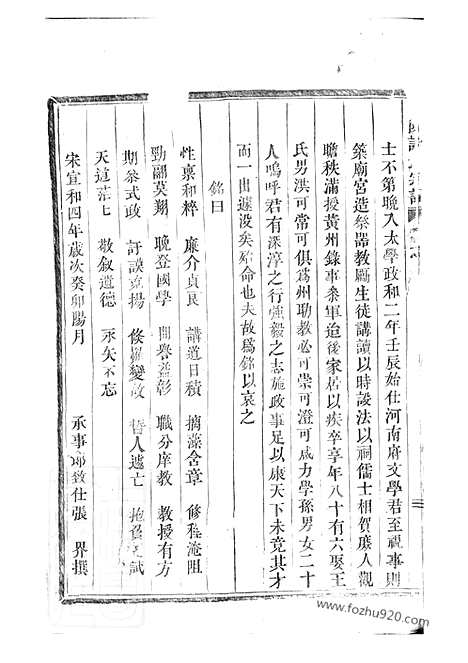 士不第晚入太學政和二年壬辰始仕河南府文學君至視事則
築廟宮造祭器教勵生徒講讀以時設法以祠儒士相賀廢人觀
瞻秩滿授黃州錄事參軍迨後家居以疾卒享年八十有六娶王
氏男洪可常可俱爲州助教必可崇可澄可咸力學孫男女二十
人嗚呼君有深淳之行強毅之志施政事足以康天下未竟其才
而一出遽没矣殆命也夫故爲銘以哀之
銘曰
性稟和粹 廉介貞良 講道日積 摛藻含章 修程淹阻
勁翮莫翔 晚登國學 聞譽益彰 職分庠教 教授有方
期參式政 訏謨 揚 變故 哲人遽亡 抱 試
天道茫七 敬叙道德 永矢不忘
宋宣和四年歲次癸卯陽月 承事郎致仕張 界撰
www.fozhu920.com